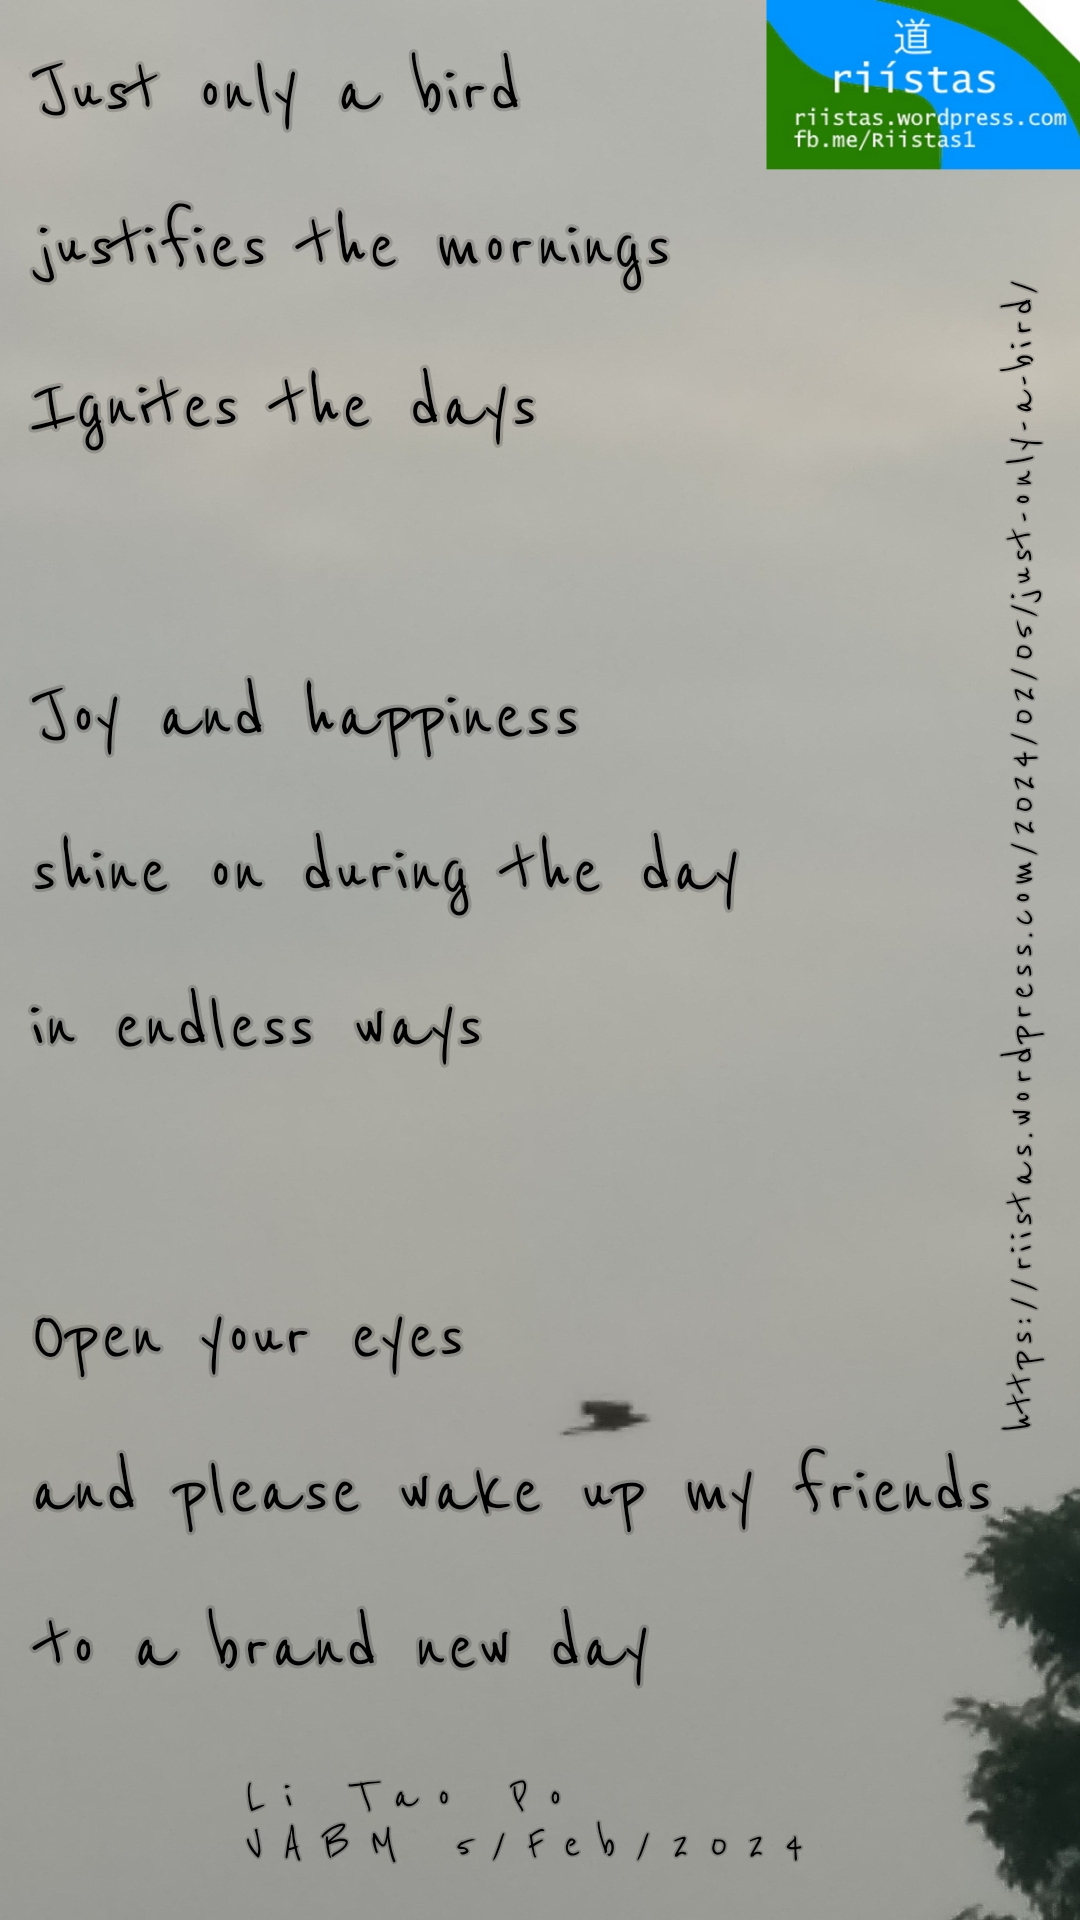 道
riístas
riistas.wordpress.com
fb.me/Riistas1
Just only a bird
justifies the mornings
Ignites the days
Joy and happiness
shine on during the day
in endless ways
Open your eyes
and please wake up my friends
to a brand new day
Li Tao Po
VABM 5/Feb/2024
https://riistas.wordpress.com/2024/02/05/just-only-a-bird/